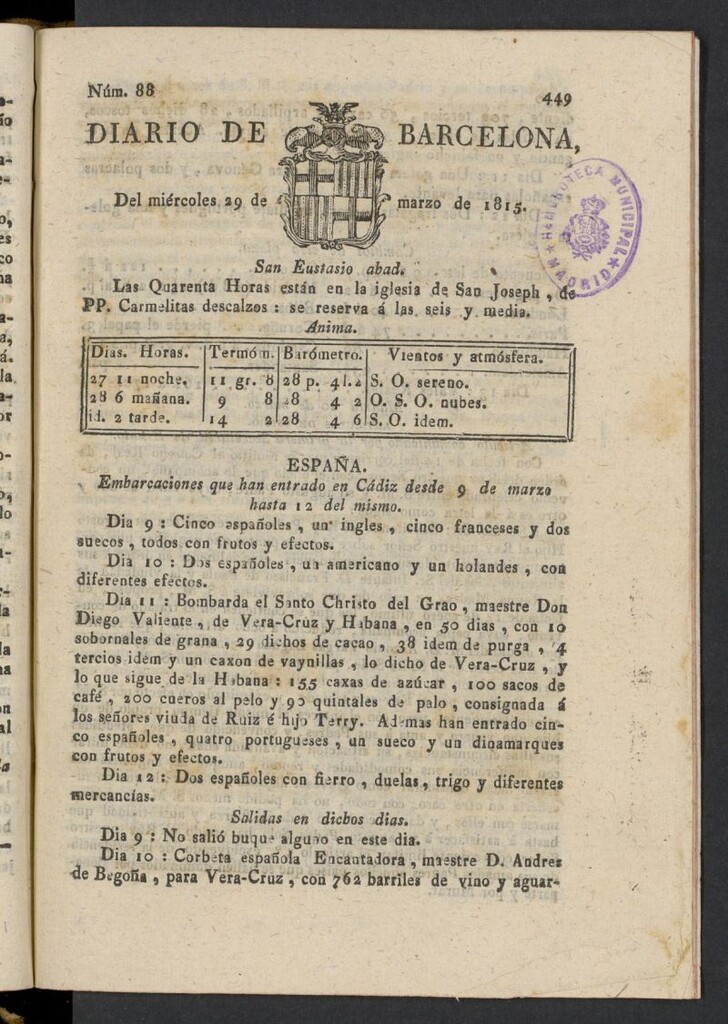 Núm. 88
449
DIARIO DE BARCELONA,
Del miércoles 29 de marzo de 1815.
HEMEROTECA MUNICIPAL
★ MADRID ★
San Eustasio abad.
Las Quarenta Horas están en la iglesia de San Joseph , de
PP. Carmelitas descalzos : se reserva á las seis y media.
Anima.
Dias. Horas. Termóm. Barómetro. Vientos y atmósfera.
27 11 noche. 11 gr. 8 28 p. 4 l. 2 S. O. sereno.
28 6 mañana. 9 8 28 4 2 O. S. O. nubes.
id. 2 tarde. 14 2 28 4 6 S. O. idem.
ESPAÑA.
Embarcaciones que han entrado en Cádiz desde 9 de marzo
hasta 12 del mismo.
Dia 9 : Cinco españoles , un ingles , cinco franceses y dos
suecos , todos con frutos y efectos.
Dia 10 : Dos españoles , un americano y un holandes , con
diferentes efectos.
Dia 11 : Bombarda el Santo Christo del Grao , maestre Don
Diego Valiente , de Vera-Cruz y Habana , en 50 dias , con 10
sobornales de grana , 29 dichos de cacao , 38 idem de purga , 4
tercios idem y un caxon de vaynillas , lo dicho de Vera-Cruz , y
lo que sigue de la Habana : 155 caxas de azúcar , 100 sacos de
café , 200 cueros al pelo y 90 quintales de palo , consignada á
los señores viuda de Ruiz é hijo Terry. Ademas han entrado cin-
co españoles , quatro portugueses , un sueco y un dinamarques
con frutos y efectos.
Dia 12 : Dos españoles con fierro , duelas , trigo y diferentes
mercancías.
Salidas en dichos dias.
Dia 9 : No salió buque alguno en este dia.
Dia 10 : Corbeta española Encantadora , maestre D. Andres
de Begoña , para Vera-Cruz , con 762 barriles de vino y aguar-